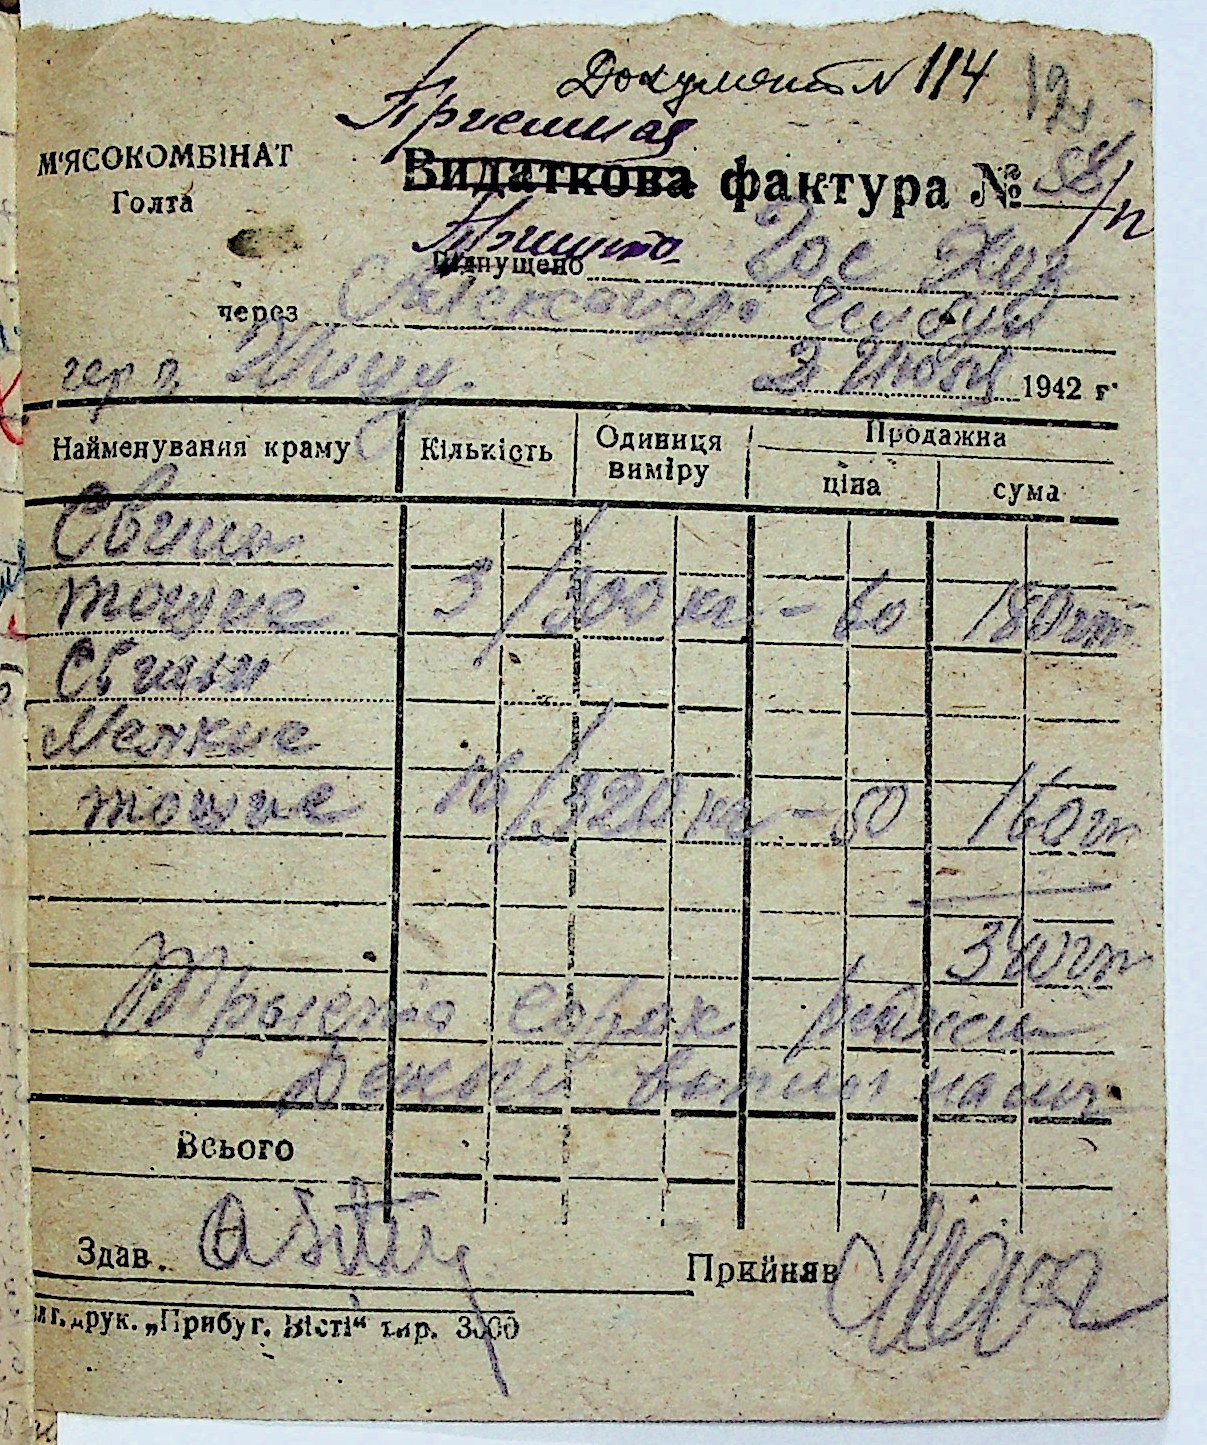 Документ № 114
Приемная
М'ЯСОКОМБІНАТ
Голта
Видаткова фактура № 58/п
Принято
Відпущено Гос Хоз
через Александр
гер п.
2 Июня 1942 г.
Найменування краму Кількість Одиниця виміру Продажна ціна сума
Свиньи
тощие 3/300 кг - 60 180 гм
Свиньи
Мелкие
тощие 16/320 кг - 50 160 гм
340 гм
Трыста сорок
Деньги
Всього
Здав.
Прийняв
друк. „Прибуг. Вісті“ тир. 3000